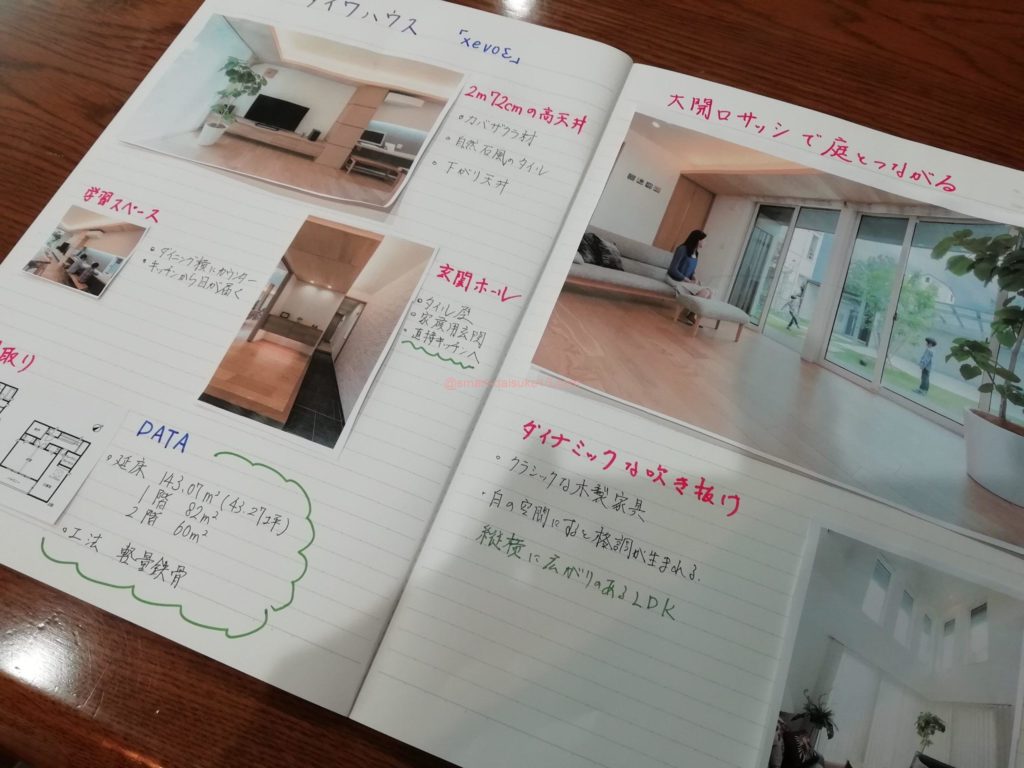 ダイワハウス 「xevoΣ」
2m72cmの高天井
・カバザクラ材
・自然石風のタイル
・下がり天井
学習スペース
・ダイニング横にカウンター
・キッチンから目が届く
玄関ホール
・タイル壁
・家族用玄関
・直接キッチンへ
取り
DATA
・延床 143.07m²(43.27坪)
1階 82m²
2階 60m²
・工法 軽量鉄骨
大開口サッシで庭とつながる
ダイナミックな吹き抜け
・クラシックな木製家具
・白の空間におくと格調が生まれる.
縦横に広がりのあるLDK